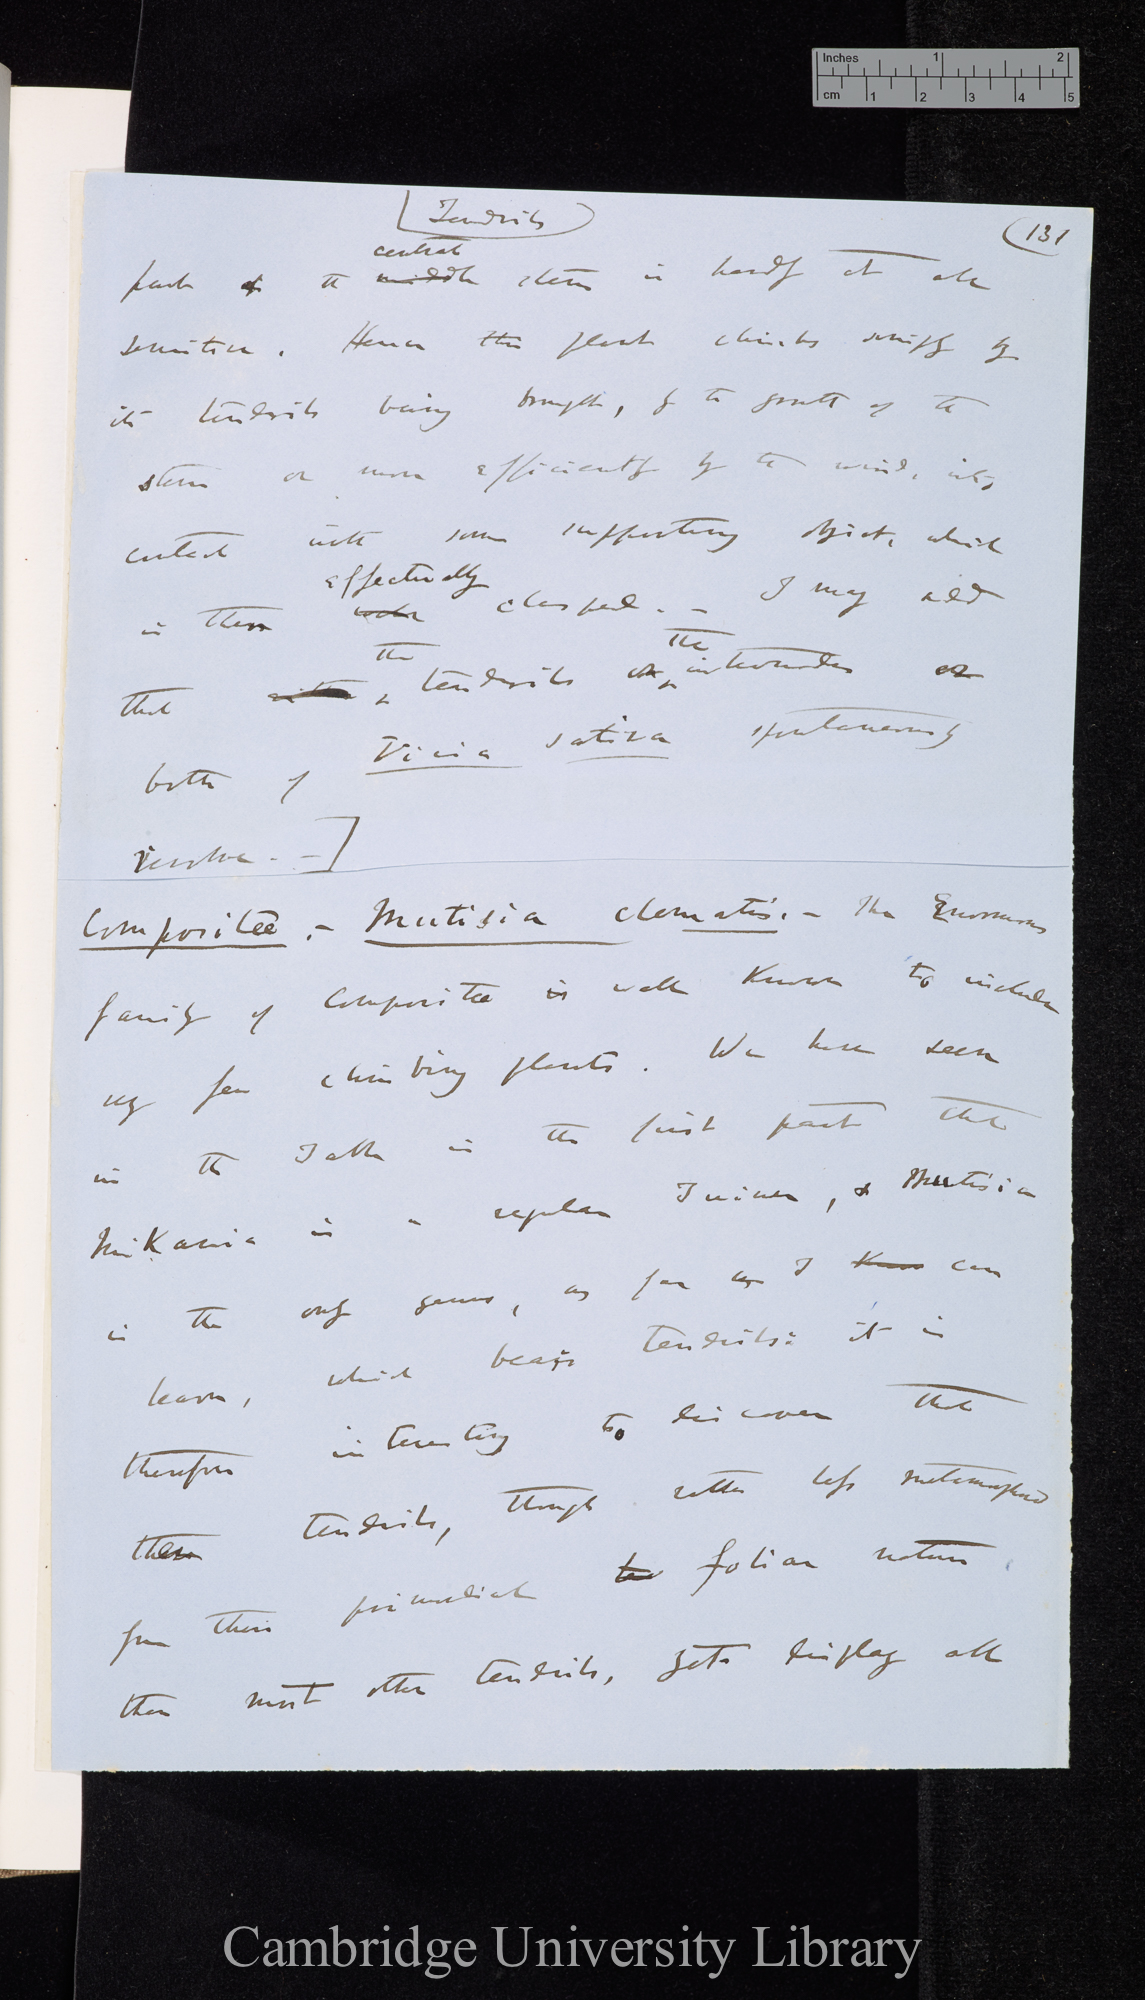 Inches 1 2
cm 1 2 3 4 5
Tendrils
(131
central
part of the middle stem is hardly at all
sensitive. Hence this plant climbs simply by
its tendrils being brought, by the growth of the
stem or more efficiently by the wind, into
contact with some supporting object, which
effectually
is then clasped. — I may add
the the
that tendrils or internodes or
both of Vicia sativa spontaneously
revolve. —]
Compositæ. — Mutisia clematis. — The Enormous
family of Compositæ is well known to include
very few climbing plants. We have seen
in the Table in the first part that
Mikania is a regular Twiner, & Mutisia
is the only genus, as far as I know can
learn, which bears tendrils: it is
therefore interesting to discover that
these tendrils, though rather less metamorphosed
from their primordial foliar nature
than most other tendrils, yet display all
Cambridge University Library